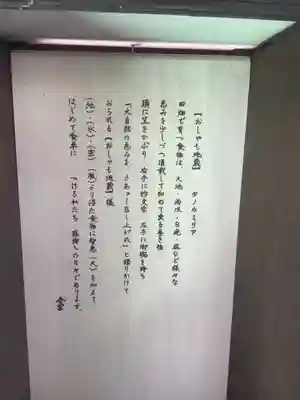 【おしゃも地蔵】　タノカミサア
田畑で育つ食物は、大地・雨水・日光・風など様々な
恵みを少しづつ頂戴して初めて実を巻き
頭に笠をかぶり　右手に杓文字　左手に御椀を持ち
「大自然の恵みを、さあァー召し上がれ」と語りかけて
おられる【おしゃも地蔵】様
（地）・（水）・（空）・（風）より得た食物に智恵（火）を加えて
はじめて食卓に
つける私たち　感謝しの日々であります。
合掌